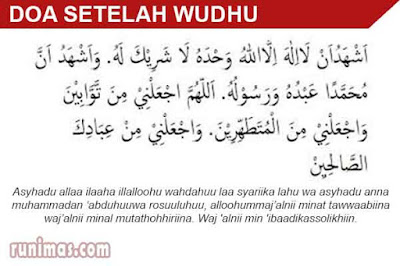 DOA SETELAH WUDHU
اَشْهَدُاَنْ لَااِلٰهَ اِلَّااللهُ وَحْدَهُ لَا شَرِيْكَ لَهُ. وَاَشْهَدُ اَنَّ
مُحَمَّدًا عَبْدُهُ وَرَسُوْلُهُ. اَللّٰهُمَّ اجْعَلْنِيْ مِنَ تَّوَّابِيْنَ
وَاجْعَلْنِيْ مِنَ الْمُتَطَهِّرِيْنَ. وَاجْعَلْنِيْ مِنْ عِبَادِكَ
الصَّالِحِيْنَ
Asyhadu allaa ilaaha illalloohu wahdahuu laa syariika lahu wa asyhadu anna
muhammadan 'abduhuuwa rosuuluhuu, alloohummaj'alnii minat tawwaabiina
waj'alnii minal mutathohhiriina. Waj 'alnii min 'ibaadikassolikhiin.
runimas.com